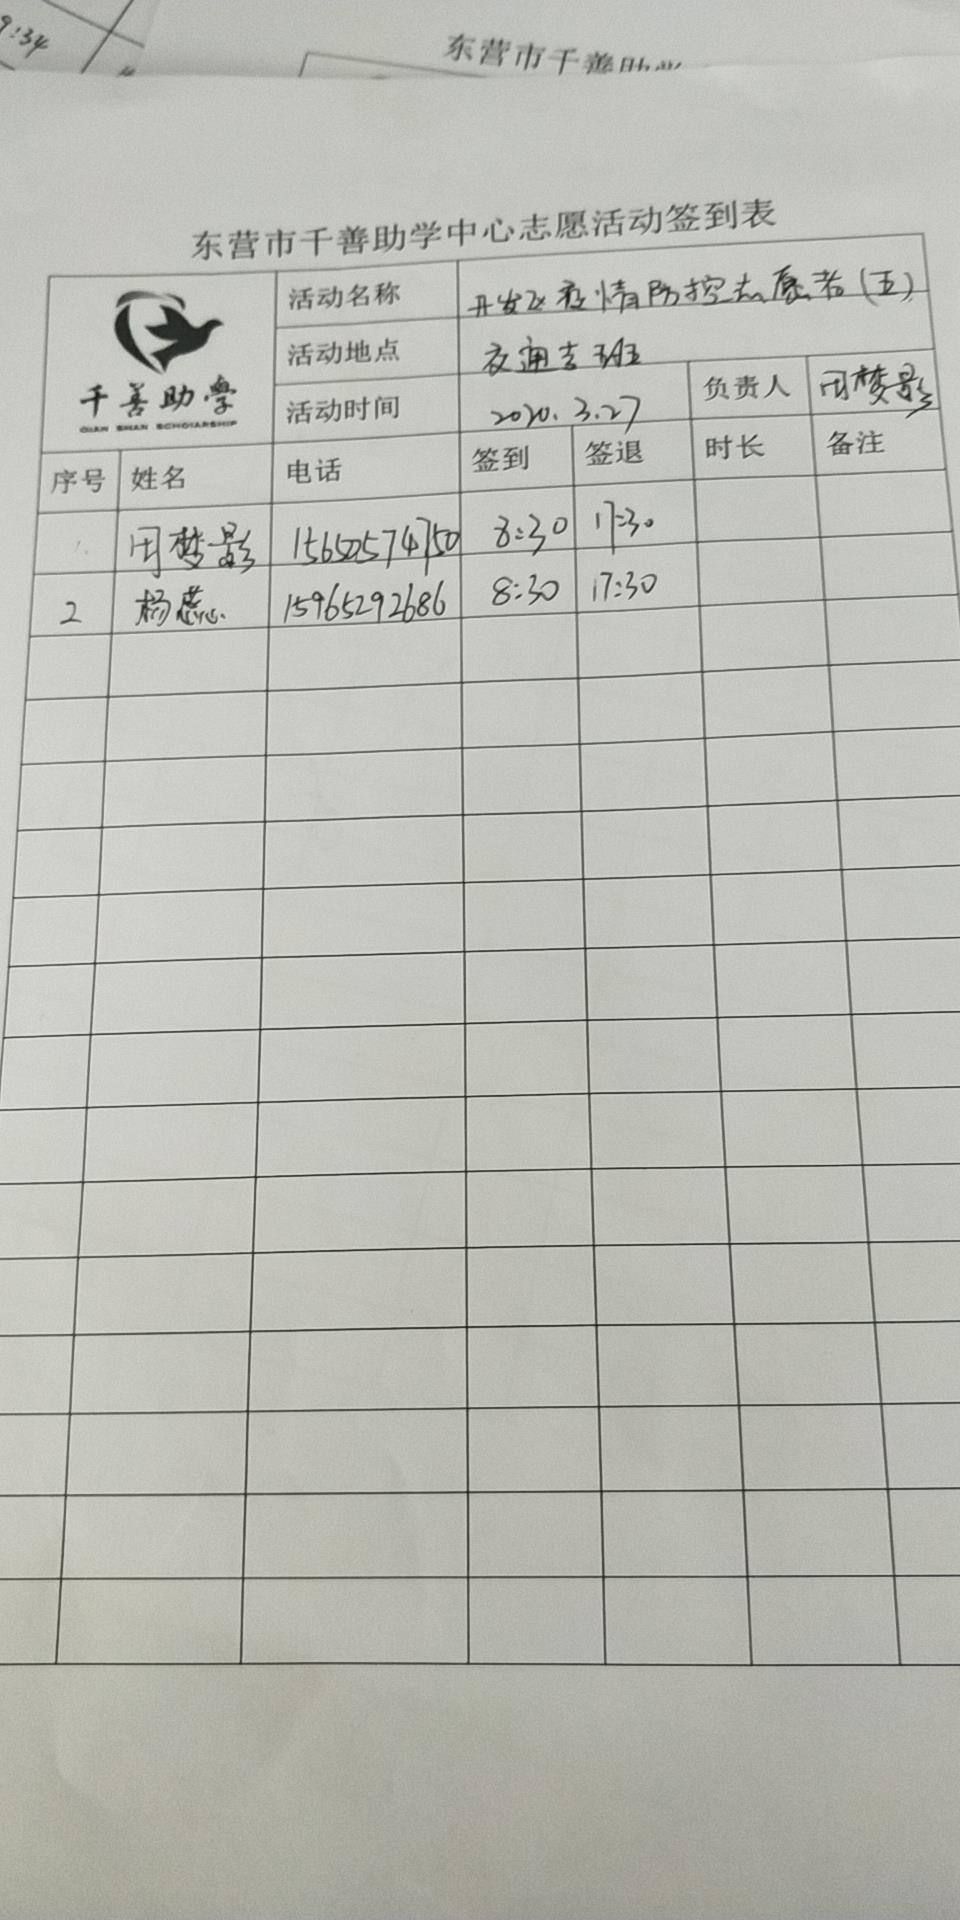 9:34
东营市千善助学
东营市千善助学中心志愿活动签到表
千善助学
QIAN SHAN SCHOLARSHIP
活动名称 开发区疫情防控志愿者(五)
活动地点 交通专班
活动时间 2020.3.27 负责人 田梦影
序号 姓名 电话 签到 签退 时长 备注
1. 田梦影 8:30 17:30
2 杨蕊 15965292686 8:30 17:30